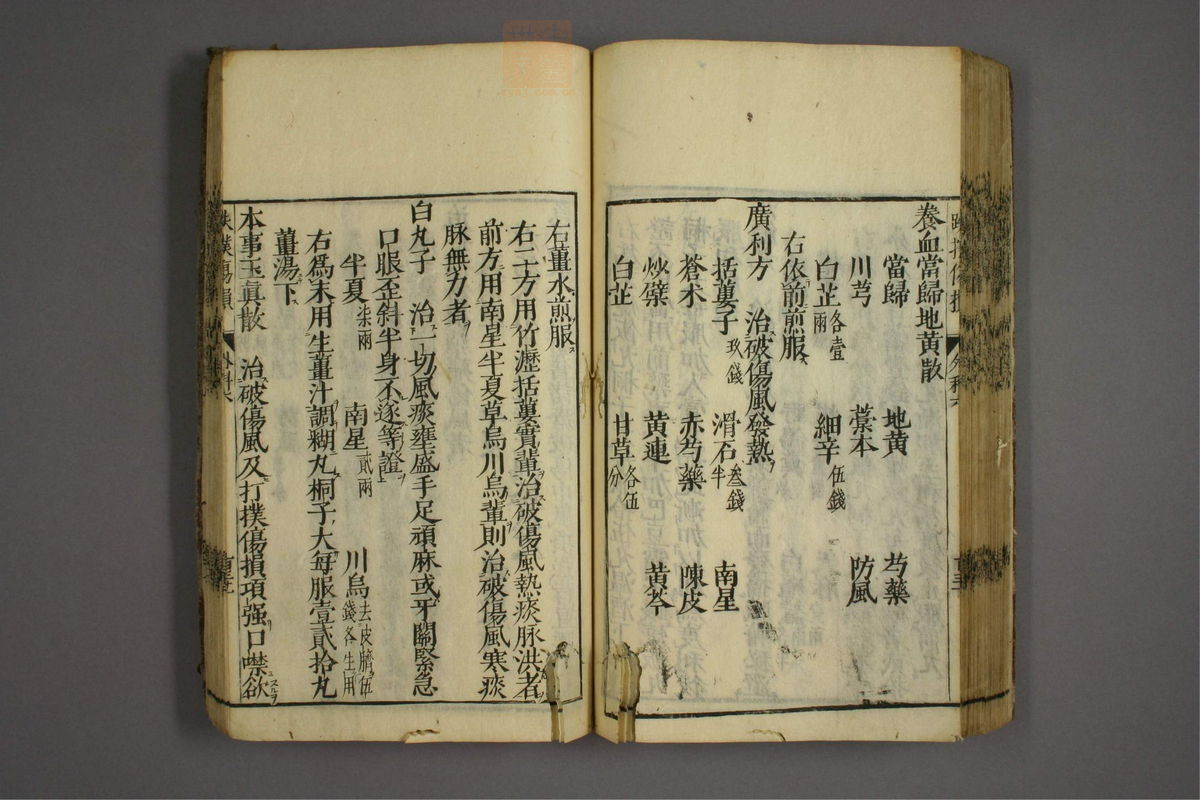 養血當歸地黃散
當歸 地黃 芍藥
川芎 藁本 防風
白芷各壹兩 細辛伍錢
右依前煎服
廣利方 治破傷風發熱
括蔞子玖錢 滑石叁錢半 南星
蒼朮 赤芍藥 陳皮
炒蘗 黃連 黃芩
白芷 甘草各伍分
右薑水煎服
右二方用竹瀝括蔞實輩治破傷風熱痰脉洪者
前方用南星半夏草烏川烏輩則治破傷風寒痰
脉無力者
白丸子 治一切風痰壅盛手足頑麻或牙關緊急
口眼歪斜半身不遂等證
半夏柒兩 南星貳兩 川烏去皮臍伍錢各生用
右爲末用生薑汁調糊丸桐子大每服壹貳拾丸
薑湯下
本事玉眞散 治破傷風及打撲傷損項强口噤欲
跌撲傷損 外科六